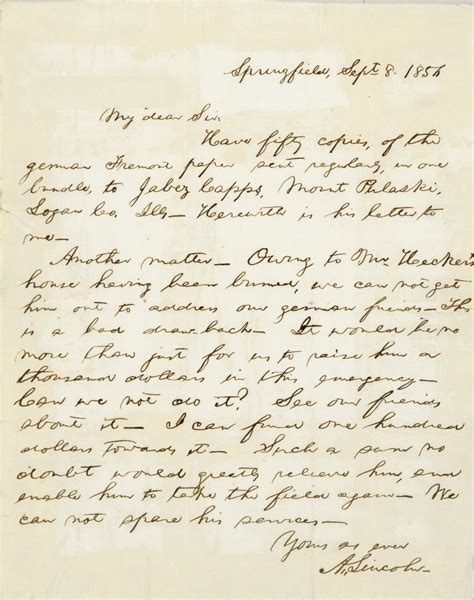 Springfield, Sept. 8. 1856
My dear Sir:
Have fifty copies, of the
german Fremont paper sent regularly, in one
bundle, to Jabez Capps, Mount Pulaski,
Logan Co, Ills— Herewith is his letter to
me—
Another matter— Owing to Mr. Hecker's
house having been burned, we can not get
him out to address our german friends— This
is a bad draw-back— It would be no
more than just for us to raise him a
thousand dollars in this emergency—
Can we not do it? See our friends
about it— I can find one hundred
dollars towards it— Such a sum no
doubt would greatly relieve him, and
enable him to take the field again— We
can not spare his services—
Yours as ever
A. Lincoln—